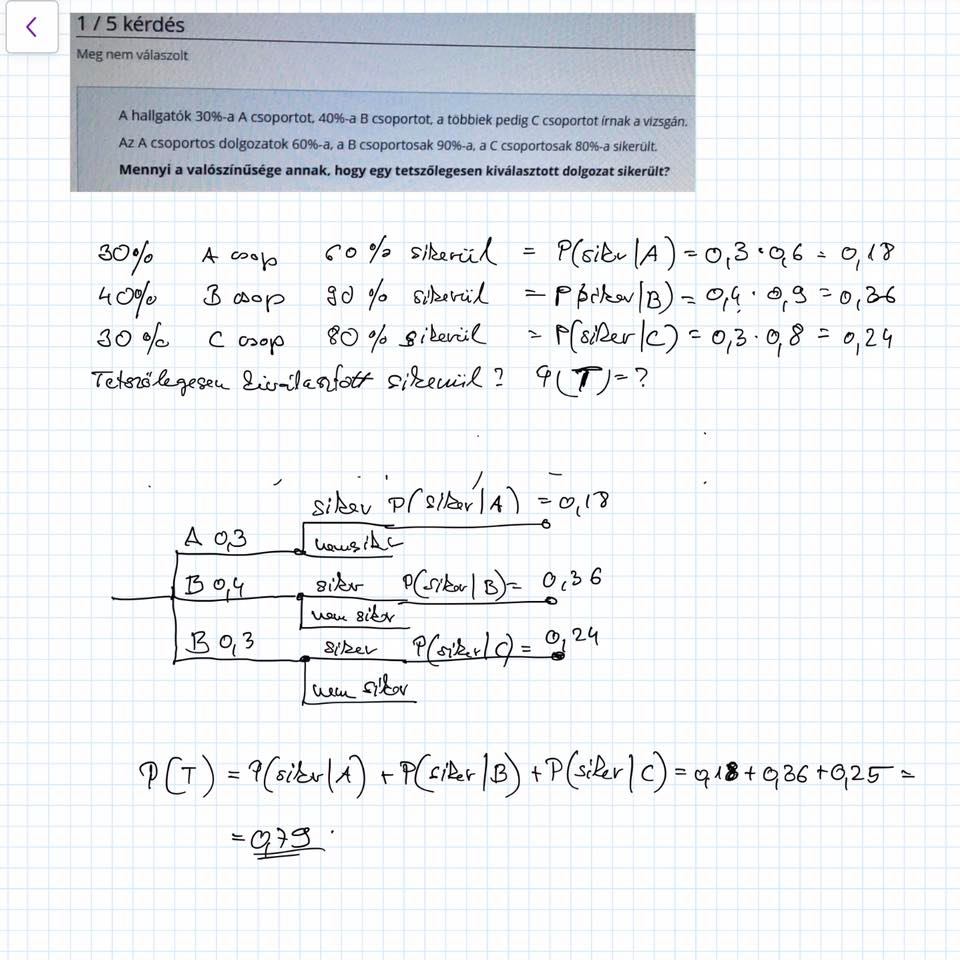 1 / 5 kérdés
Meg nem válaszolt
A hallgatók 30%-a A csoportot, 40%-a B csoportot, a többiek pedig C csoportot írnak a vizsgán.
Az A csoportos dolgozatok 60%-a, a B csoportosak 90%-a, a C csoportosak 80%-a sikerült.
Mennyi a valószínűsége annak, hogy egy tetszőlegesen kiválasztott dolgozat sikerült?
30% A csop 60% sikerül = P(sikr|A) = 0,3 · 0,6 = 0,18
40% B csop 90% sikerül = P(siker|B) = 0,4 · 0,9 = 0,36
30% C csop 80% sikerül = P(siker|C) = 0,3 · 0,8 = 0,24
Tetszőlegesen kiválasztott sikerül? P(T) = ?
siker P(siker|A) = 0,18
A 0,3 nem sik
B 0,4 sikr P(siker|B) = 0,36
nem siker
B 0,3 siker P(siker|C) = 0,24
nem siker
P(T) = P(sikr|A) + P(siker|B) + P(siker|C) = 0,18 + 0,36 + 0,25 =
= 0,79